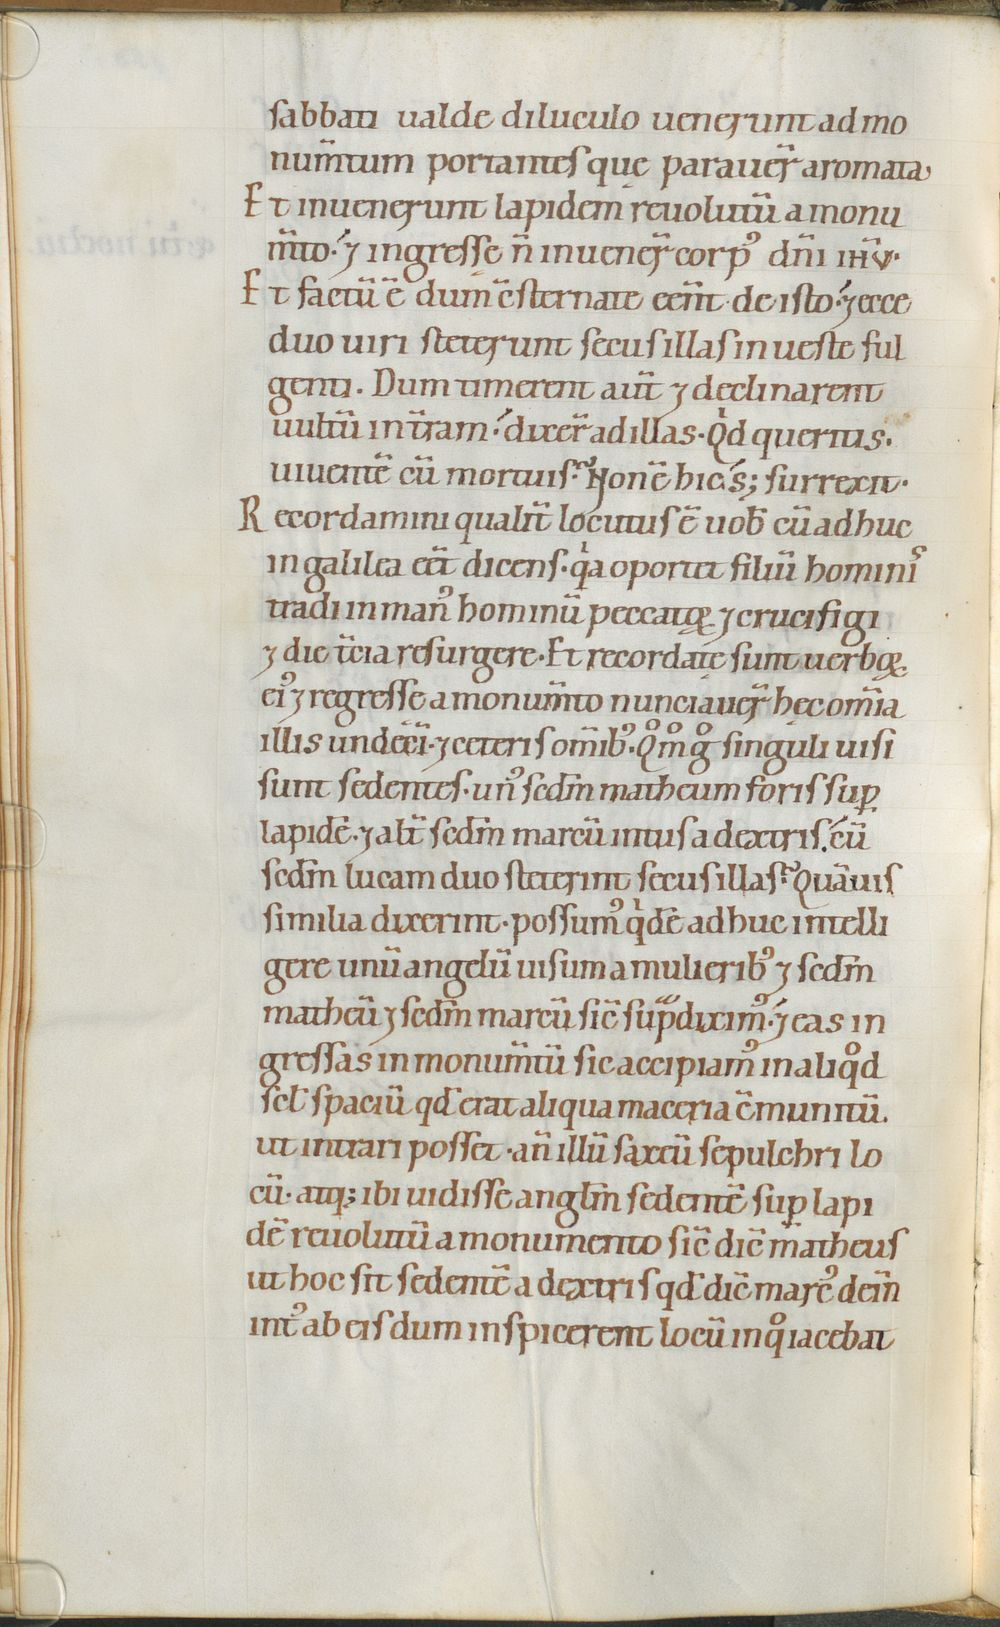 sabbati ualde diluculo uenerunt ad mo
num̄tum portantes quę parauer̄ aromata.
Et inuenerunt lapidem reuolutū a monu
m̄to. ⁊ ingressę n̄ inuener̄ corp᾿ dn̄i ihū.
Et factū ē dum c̄sternate eēnt de isto. ⁊ ecce
duo uiri steterunt secus illas in ueste ful
genti. Dum timerent aut̄ ⁊ declinarent
uultū in t̄ram. dixer̄ ad illas. Qͥd queritis.
uiuentē cū mortuis? Non ē hic s; surrexit.
Recordamini qualit̄ locutus ē uob̄ cū adhuc
in galilea eēt dicens. qͥa oportet filiū homini᾿
tradi in man᾿ hominū peccatoꝝ ⁊ crucifigi
⁊ die t̄cia resurgere. Et recordatę sunt uerboꝝ
ei᾿ ⁊ regressę a monum̄to nunciauer̄ hęc om̄ia
illis undeci̅. ⁊ ceteris om̄ib᾿. Qͦmͦgͦ singuli uisi
sunt sedentes. un᾿ scdm̄ matheum foris suꝑ
lapidē. ⁊ alt̄ scdm̄ marcū intus a dextris. cū
scdm̄ lucam duo steterint secus illas? Quāuis
similia dixerint. possum᾿ qͥdē adhuc intelli
gere unū angelū uisum a mulierib᾿ ⁊ scdm̄
matheū ⁊ scdm̄ marcū sic̄ sup̄ dixim᾿. ⁊ eas in
gressas in monum̄tū sic accipiam᾿ in aliqͦd
scl̄ spaciū qd̄ erat aliqua maceria c̄munitū.
ut intrari posset. an̄ illū saxeū sepulchri lo
cū. atq; ibi uidisse anglm̄ sedentē suꝑ lapi
dē reuolutū a monumento sic̄ dic̄ matheus
ut hoc sit sedentē a dextris qd̄ dic̄ marc᾿ dein̄
int᾿ ab eis dum inspicerent locū in qͦ iacebat